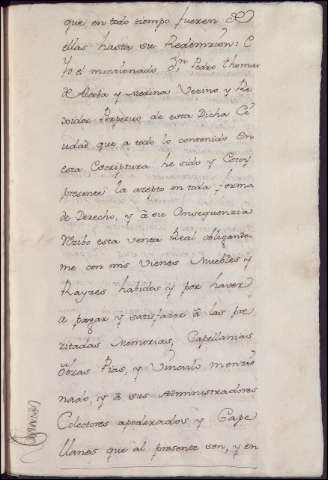 que en todo tiempo fueren de
ellas hasta su Redempcion: E
Yo el mencionado Dn Pedro Thomas
de Acosta y Medina Vezino y Re
xidor Perpetuo de esta Dicha Ci
udad que a todo lo contenido en
esta Escriptura he sido y Estoy
presente la azepto en toda forma
de Derecho, y â su Consequenzia
Rezibo esta venta Real obligando
me con mis vienes Muebles y
Rayzes habidos y por haver
a pagar y satisfazer â las pre
zitadas Memorias, Capellanias
Obras Pias, y Vinculo menzio
nado, y â sus Administradores
Colectores apoderados y Cape
llanes que al presente son, y en